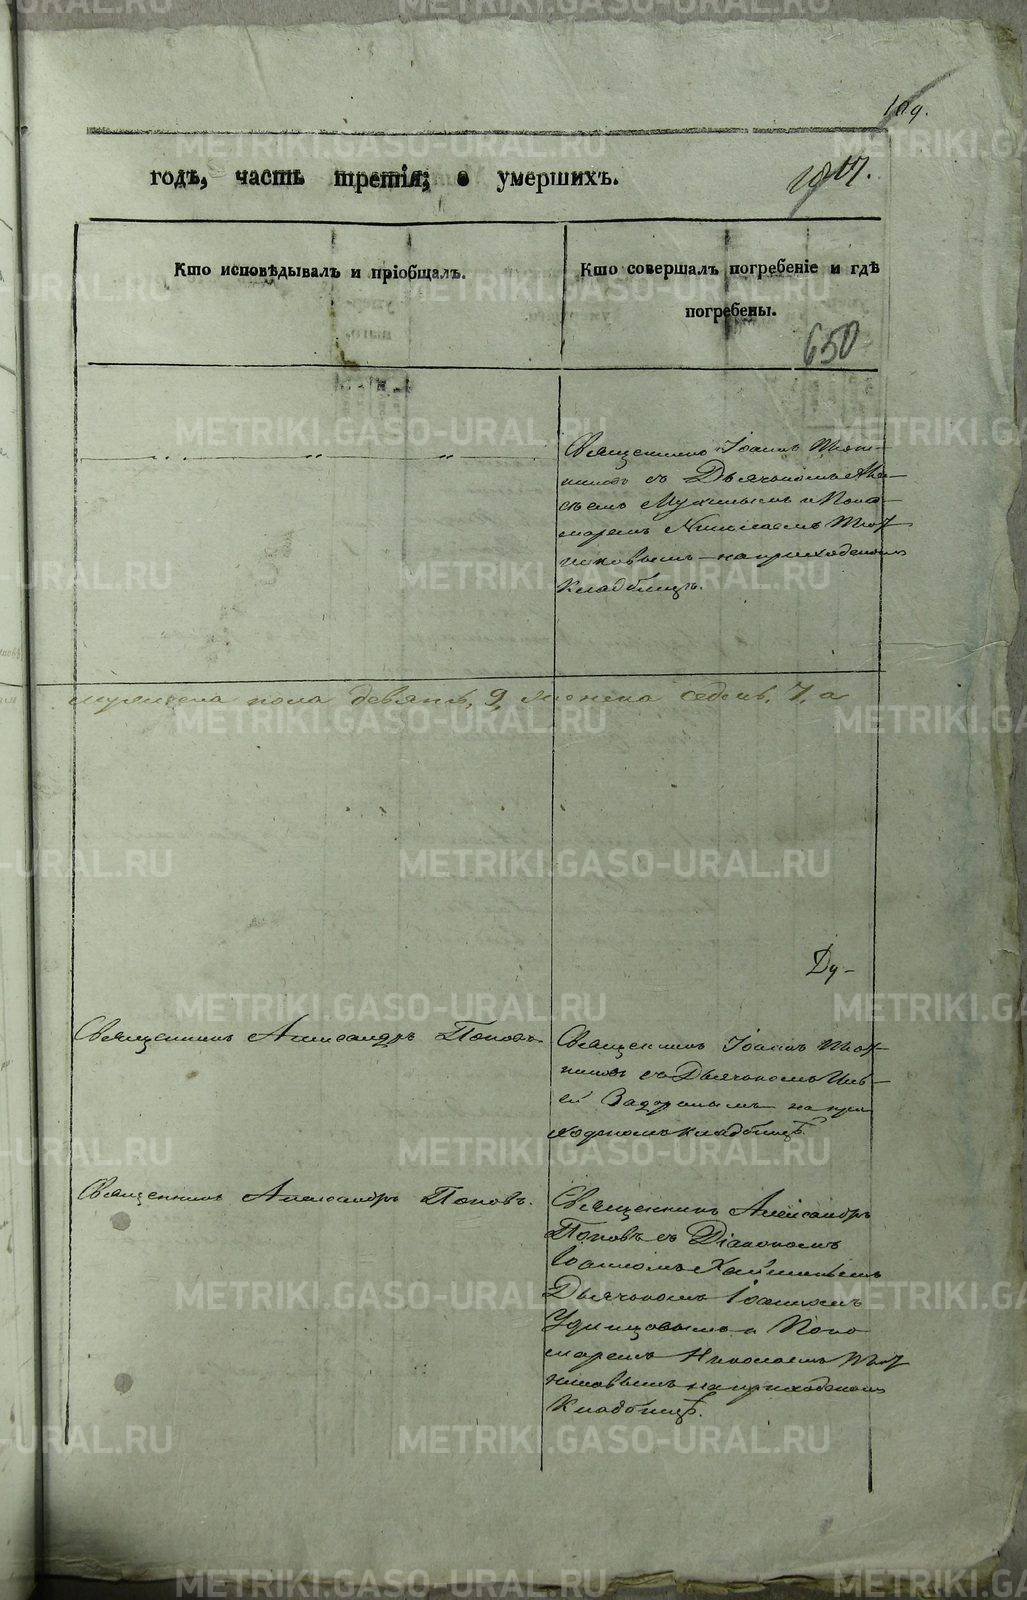 109.
годъ, часть третія; о умершихъ.
Кто исповѣдывалъ и пріобщалъ.
Кто совершалъ погребеніе и гдѣ
погребены.
650
Священникъ Іоаннъ
съ Дьячкомъ
и Поно-
маремъ Николаемъ
на приходскомъ
Кладбищѣ.
мужеска пола девять, 9, женска седмь, 7, а
Ду-
Священникъ Александръ Поповъ.
Священникъ Іоаннъ
съ Дьячкомъ
на при
ходскомъ кладбищѣ.
Священникъ Александръ Поповъ.
Священникъ Александръ
Поповъ съ Діакономъ
Іоанномъ
Дьячкомъ Іоанномъ
Удинцовымъ и Поно
маремъ Николаемъ
на приходскомъ
Кладбищѣ.
METRIKI.GASO-URAL.RU